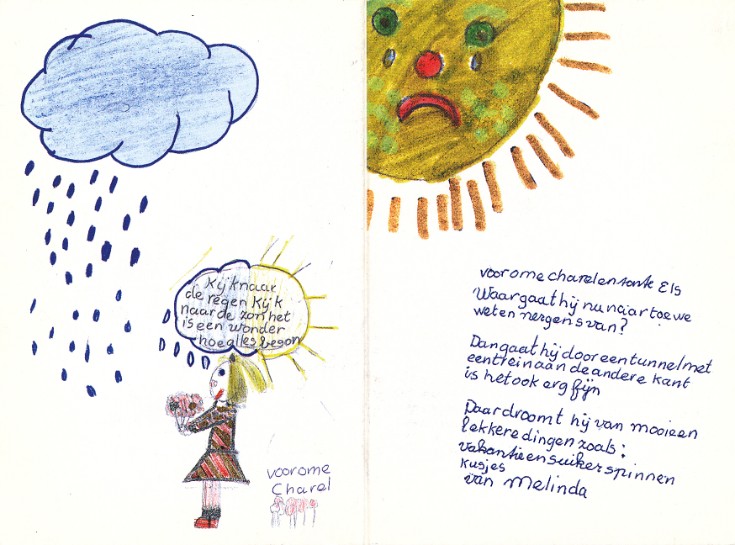 Kijk naar
de regen Kijk
naar de zon het
is een wonder
hoe alles begon
voor ome
Charel
voor ome charel en tante Els
Waar gaat hij nu naar toe we
weten nergens van?
Dan gaat hij door een tunnel met
een trein aan de andere kant
is het ook erg fijn
Daar droomt hij van mooi een
lekkere dingen zoals:
vakantie en suikerspinnen
Kusjes
van Melinda